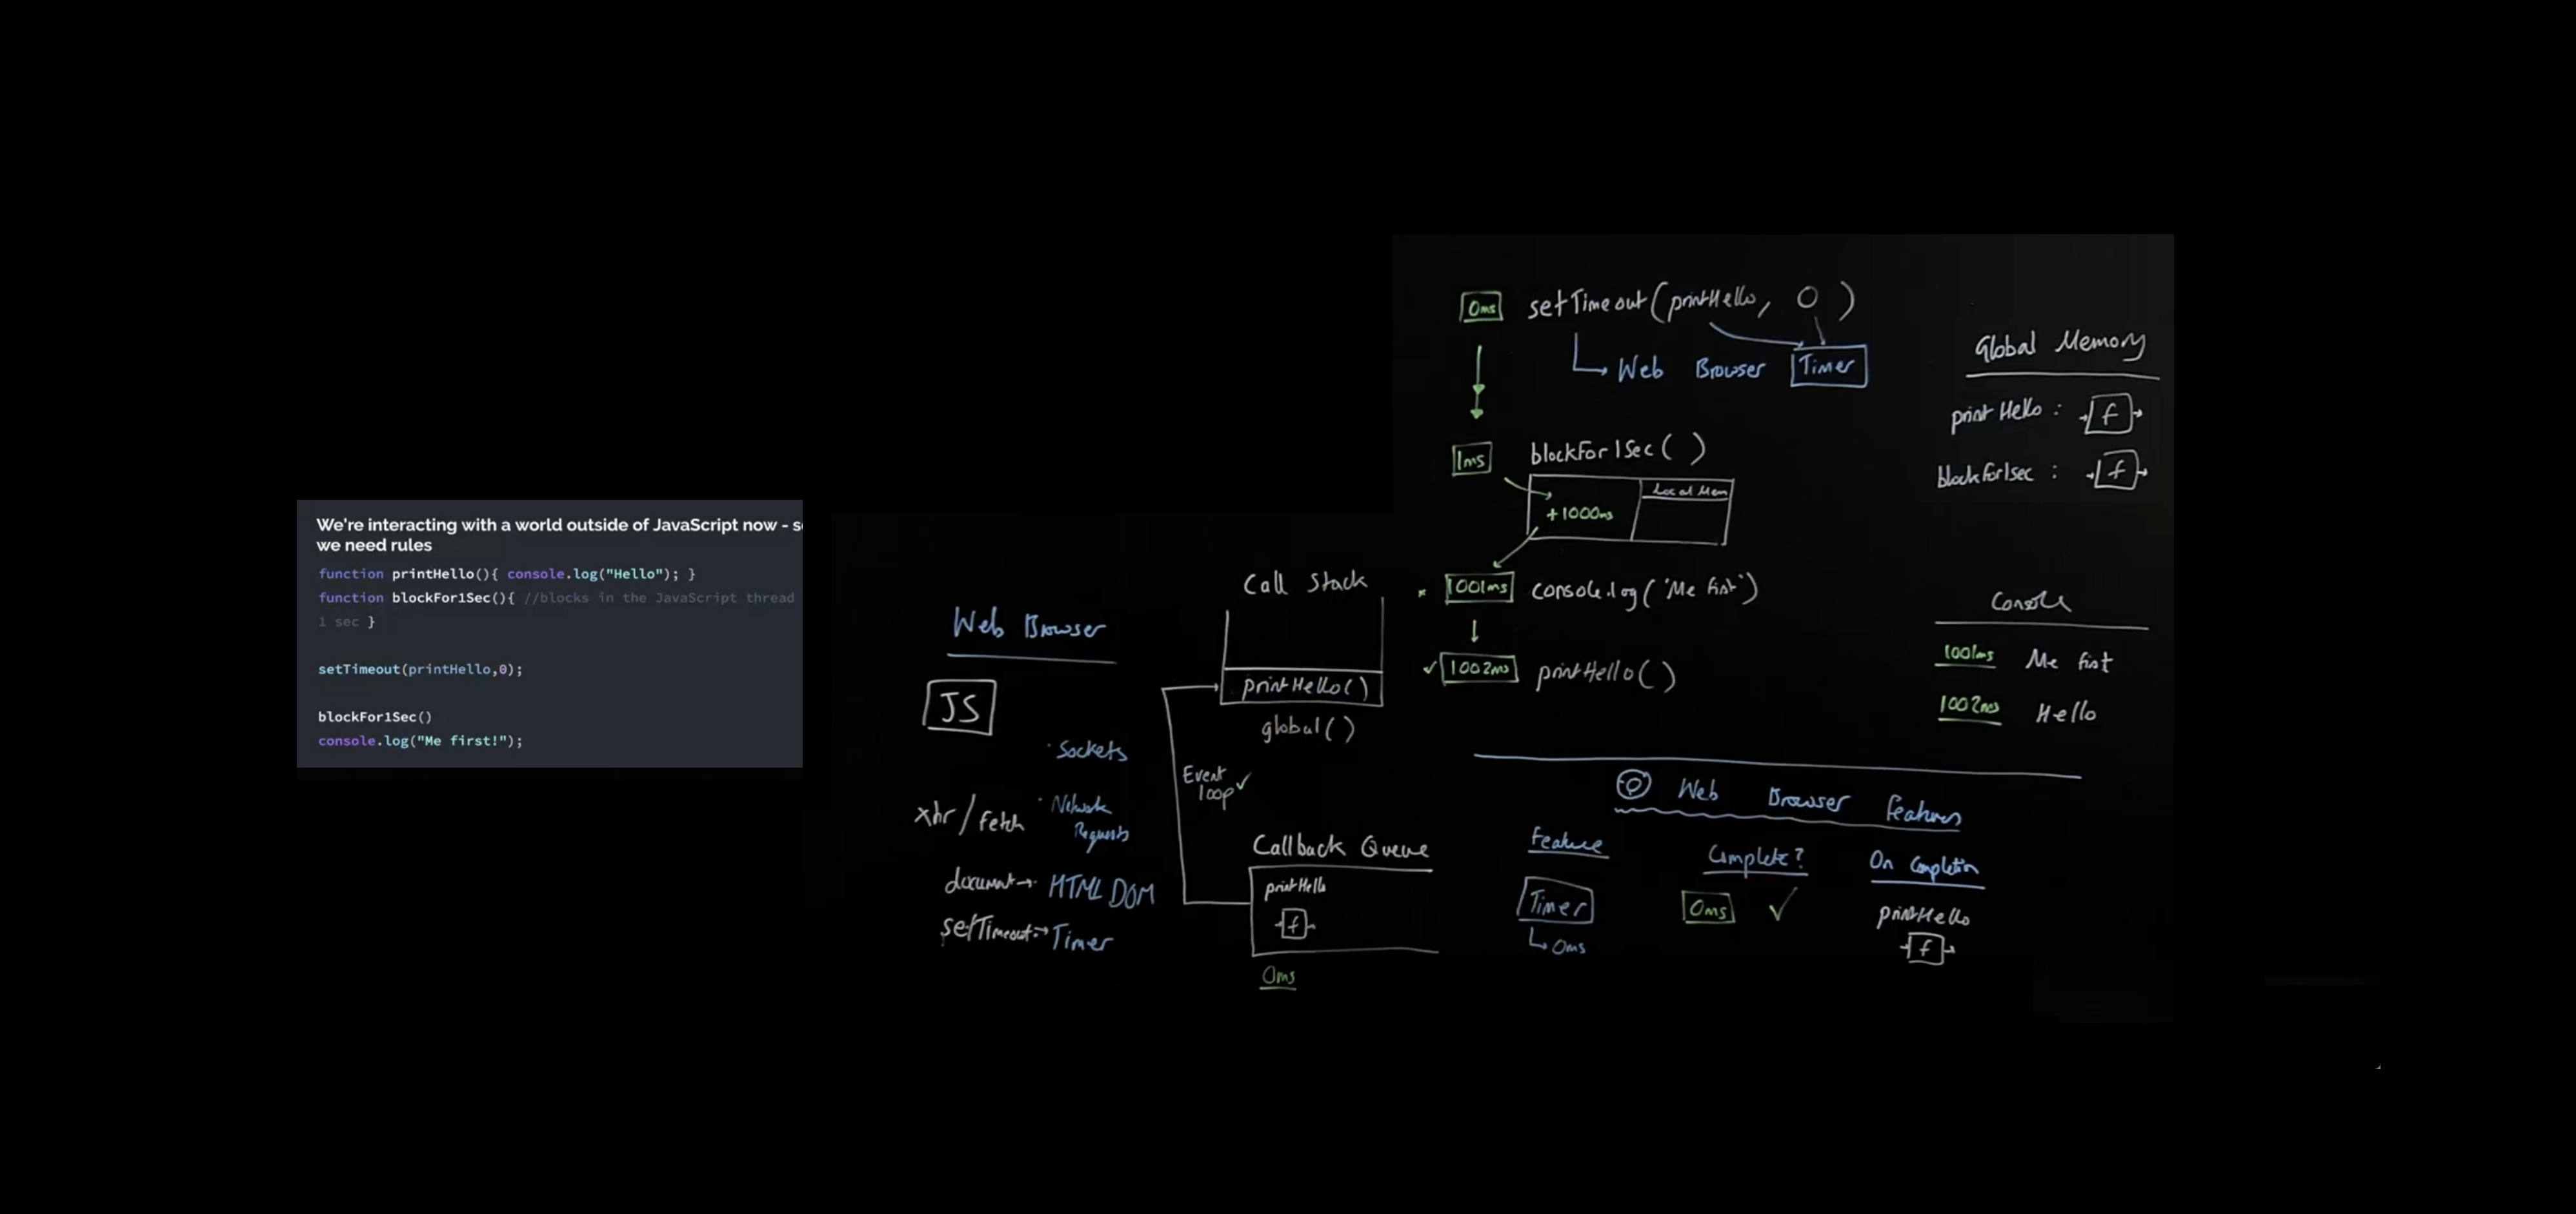 We're interacting with a world outside of JavaScript now - s
we need rules
function printHello(){ console.log("Hello"); }
function blockFor1Sec(){ //blocks in the JavaScript thread
1 sec }
setTimeout(printHello,0);
blockFor1Sec()
console.log("Me first!");
Web Browser
JS
Sockets
xhr/fetch
Network
Requests
document → HTML DOM
setTimeout → Timer
Call Stack
printHello()
global()
Event
loop ✓
Callback Queue
printHello
f
0ms
0ms setTimeout(printHello, 0)
Web Browser Timer
1ms blockFor1Sec()
Local Mem
+1000ms
* 1001ms console.log('Me first')
✓ 1002ms printHello()
Global Memory
printHello : f
blockFor1sec : f
Console
1001ms Me first
1002ms Hello
Web Browser Features
Feature Complete? On Completion
Timer 0ms ✓ printHello
0ms f